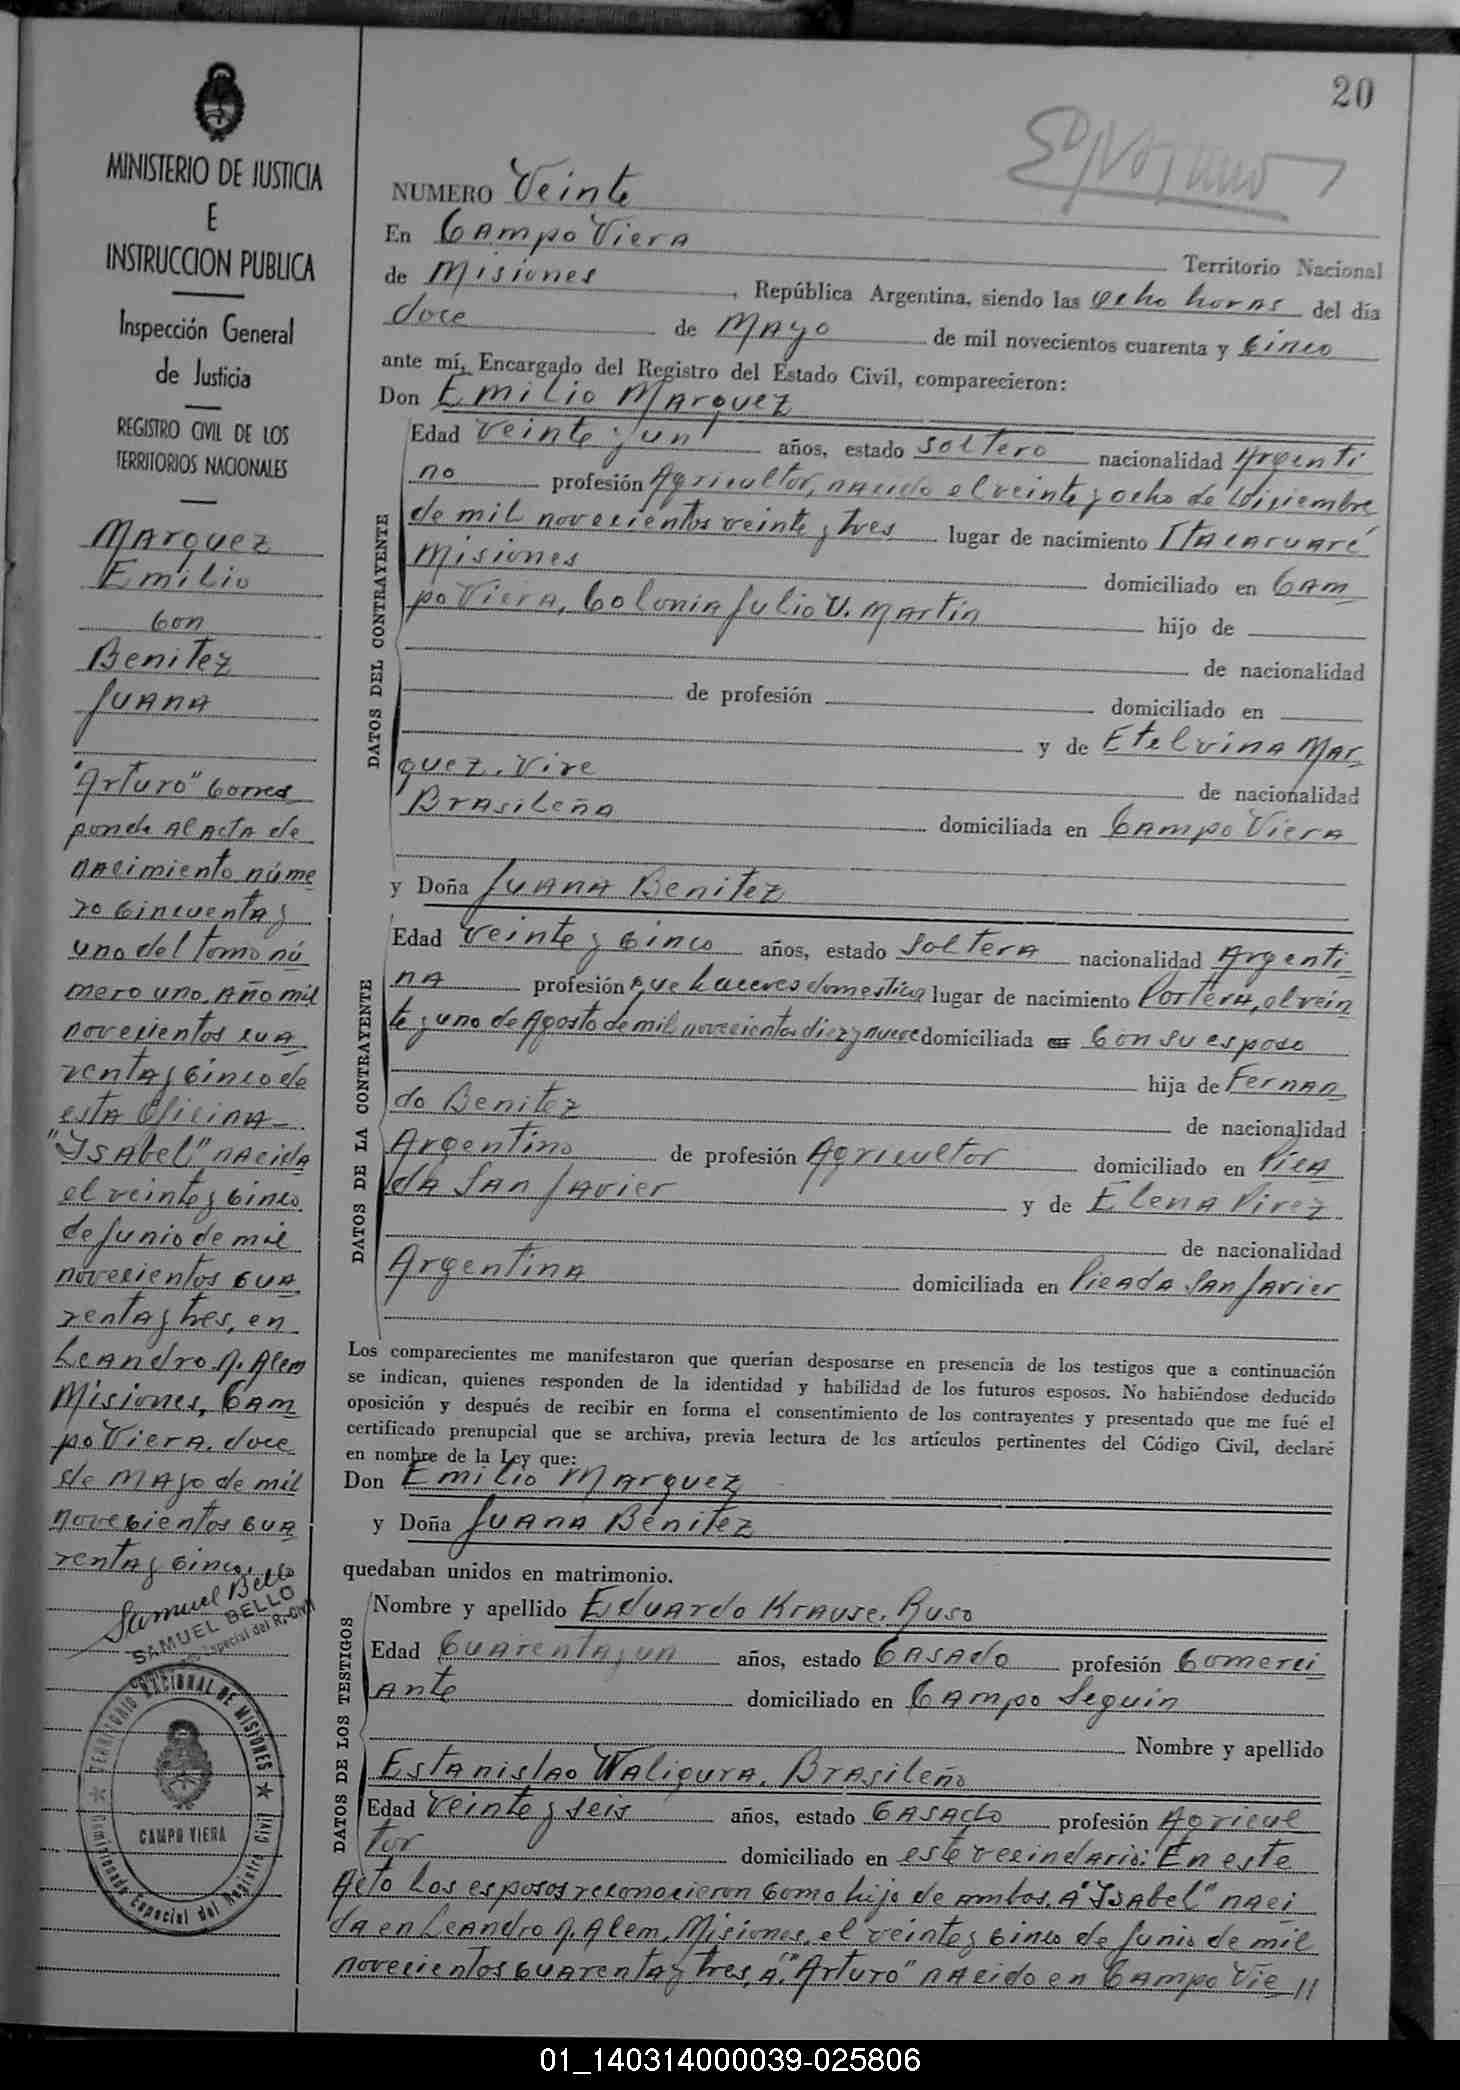 20
MINISTERIO DE JUSTICIA
E
INSTRUCCION PUBLICA
Inspección General
de Justicia
REGISTRO CIVIL DE LOS
TERRITORIOS NACIONALES
Marquez
Emilio
con
Benitez
Juana
"Arturo" corres
ponde al acta de
nacimiento núme
ro cincuenta y
uno del tomo nú
mero uno, Año mil
novecientos cua
renta y cinco de
esta Oficina
"Ysabel" nacida
el veinte y cinco
de Junio de mil
novecientos cua
renta y tres, en
Leandro N. Alem
Misiones, Cam
po Viera, doce
de Mayo de mil
novecientos cua
renta y cinco.
Samuel Bello
SAMUEL BELLO
Especial del R. Civil
TERRITORIO NACIONAL DE MISIONES
CAMPO VIERA
Comisionado Especial del Registro Civil
NUMERO Veinte
En Campo Viera Territorio Nacional
de Misiones, República Argentina, siendo las ocho horas del día
doce de Mayo de mil novecientos cuarenta y cinco
ante mí, Encargado del Registro del Estado Civil, comparecieron:
Don Emilio Marquez
DATOS DEL CONTRAYENTE
Edad veinte y un años, estado soltero nacionalidad Argenti
no profesión Agricultor, nacido el veinte y ocho de Diciembre
de mil novecientos veinte y tres lugar de nacimiento Itacaruaré
Misiones domiciliado en Cam
po Viera, Colonia Julio U. Martin hijo de
de nacionalidad
de profesión domiciliado en
y de Etelvina Mar
quez. Vive de nacionalidad
Brasileña domiciliada en Campo Viera
y Doña Juana Benitez
DATOS DE LA CONTRAYENTE
Edad veinte y cinco años, estado soltera nacionalidad Argenti
na profesión que haceres domestico lugar de nacimiento Portera, el vein
te y uno de Agosto de mil novecientos diez y nueve domiciliada en con su esposo
hija de Fernan
do Benitez de nacionalidad
Argentino de profesión Agricultor domiciliado en Pica
da San Javier y de Elena Pirez
de nacionalidad
Argentina domiciliada en Picada San Javier
Los comparecientes me manifestaron que querían desposarse en presencia de los testigos que a continuación
se indican, quienes responden de la identidad y habilidad de los futuros esposos. No habiéndose deducido
oposición y después de recibir en forma el consentimiento de los contrayentes y presentado que me fué el
certificado prenupcial que se archiva, previa lectura de los artículos pertinentes del Código Civil, declaré
en nombre de la Ley que:
Don Emilio Marquez
y Doña Juana Benitez
quedaban unidos en matrimonio.
DATOS DE LOS TESTIGOS
Nombre y apellido Eduardo Krause. Ruso
Edad Cuarenta y un años, estado Casado profesión Comerci
ante domiciliado en Campo Seguin
Nombre y apellido
Estanislao Waligura. Brasileño
Edad veinte y seis años, estado Casado profesión Agricul
tor domiciliado en este vecindario: En este
Acto los esposos reconocieron como hijo de ambos, a "Ysabel" naci
da en Leandro N. Alem, Misiones, el veinte y cinco de Junio de mil
novecientos cuarenta y tres, a: "Arturo" nacido en Campo Vie //
01_140314000039-025806